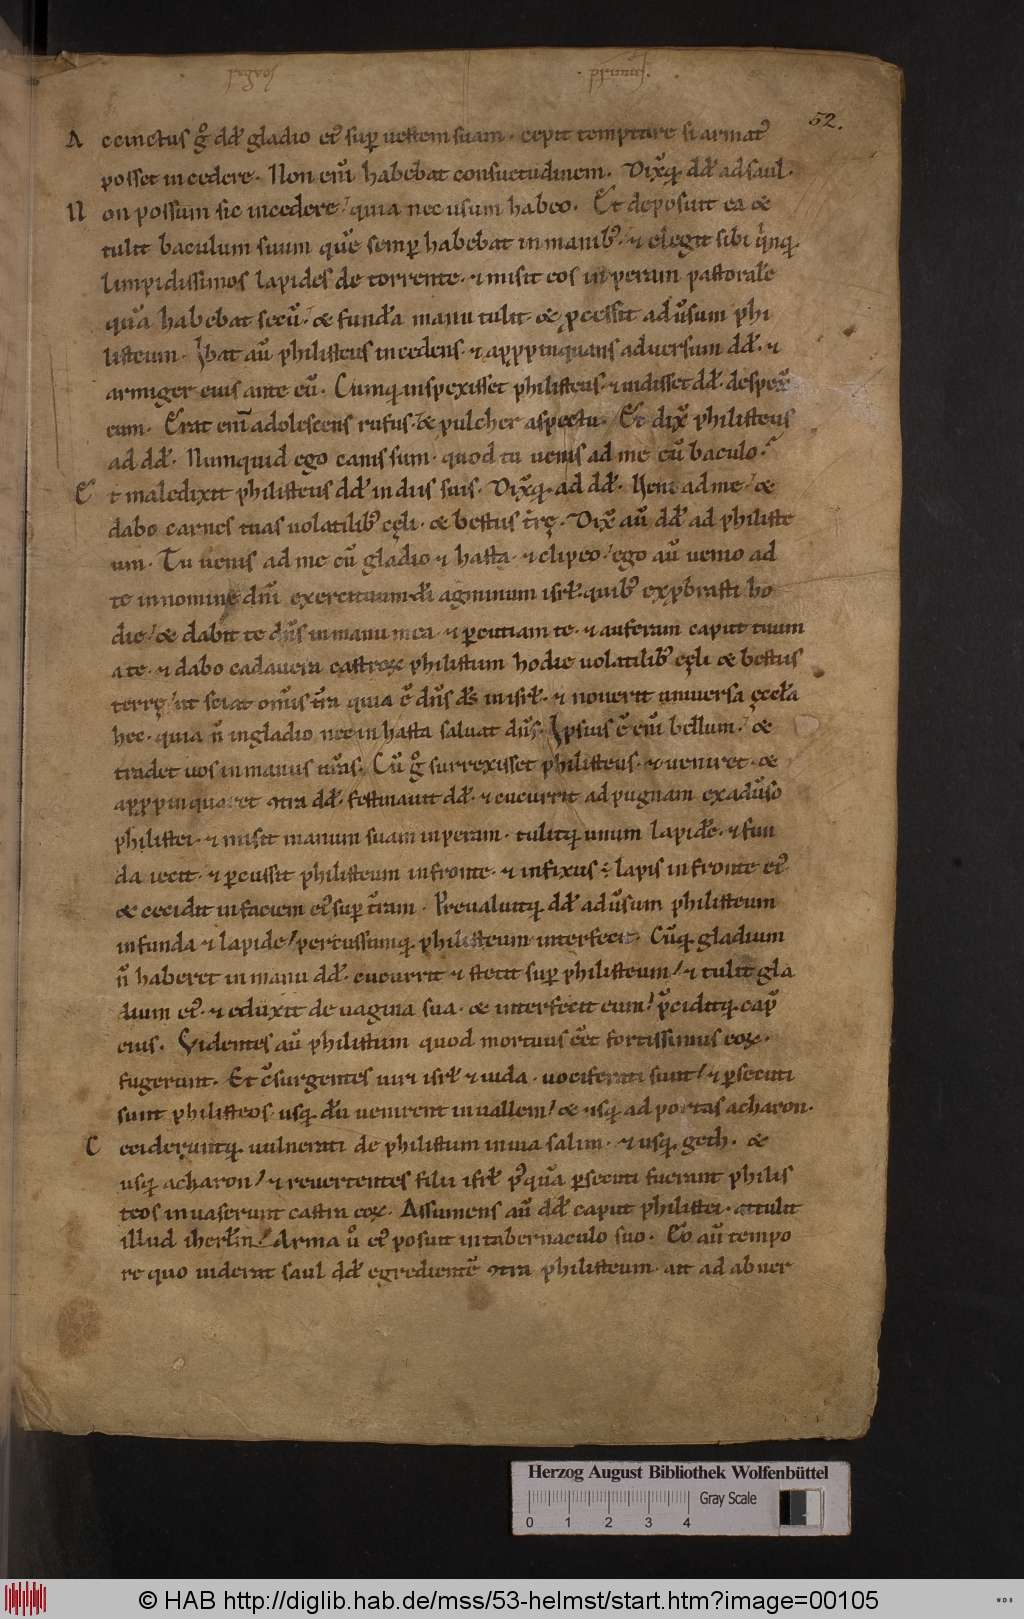 52.
Accinctus gͦ dđ gladio ei᷒ suꝑ uestem suam · cepit temptare si armat᷒
posset incedere · Non eni̅ habebat consuetudinem · Dix̅q; dđ ad saul ·
Non possum sic incedere / quia nec usum habeo · Et deposuit ea &
tulit baculum suum que̅ semꝑ habebat in manib᷒ / ⁊ elegit sibi q̍nq;
limpidissimos lapides de torrente · ⁊ misit eos in peram pastorale̅
qua̅ habebat secu̅ / & funda̅ manu tulit · & ꝓcessit adu̅sum phi
listeum · Ibat au̅ philisteus incedens · ⁊ apꝓpinquans adversum dđ · ⁊
armiger eius ante eu̅ · Cumq; inspexisset philisteus · ⁊ uidisset dđ · despex̅
eum · Erat eni̅ adolescens rufus · & pulcher aspectu · Et dix̅ philisteus
ad dđ · Numquid ego canis sum · quod tu uenis ad me cu̅ baculo ·
Et maledixit philisteus dđ in diis suis · Dix̅q; ad dđ · Ueni ad me / &
dabo carnes tuas uolatilib᷒ cęli · & bestiis t̅rę · Dix̅ au̅ dđ ad philiste
um · Tu uenis ad me cu̅ gladio ⁊ hasta · ⁊ clipeo / ego au̅ uenio ad
te in nomine dni̅ exercituum di̅ agminum isrl̅ · quib᷒ exꝓbrasti ho
die / & dabit te dn̅s in manu mea · ⁊ ꝑcutiam te · ⁊ auferam caput tuum
a te · ⁊ dabo cadauera castroꝝ philistiim hodie uolatilib᷒ cęli & bestiis
terrę / ut sciat omi̅s t̅ra quia e̅ dn̅s ds̅ in isrl̅ · ⁊ nouerit universa ęccla̅
hec · quia n̅ in gladio nec in hasta saluat dn̅s · Ipsius e̅ eni̅ bellum / &
tradet uos in manus nr̅as · Cu̅ gͦ surrexisset philisteus · ⁊ ueniret · &
apꝓpinquaret ꝯtra dđ · festinauit dđ · ⁊ cucurrit ad pugnam ex adu̅so
philistei · ⁊ misit manum suam in peram · tulitq; unum lapide̅ · ⁊ fun
da iecit · ⁊ ꝑcussit philisteum in fronte · ⁊ infixus ÷ lapis in fronte ei᷒
& cecidit in faciem ei᷒ suꝑ t̅ram · Preualuitq; dđ adu̅sum philisteum
in funda ⁊ lapide / percussumq; philisteum interfecit · Cu̅q; gladium
n̅ haberet in manu dđ · cucurrit ⁊ stetit suꝑ philisteum / ⁊ tulit gla
dium ei᷒ · ⁊ eduxit de uagina sua · & interfecit eum / p̅ciditq; cap̅
eius · Videntes au̅ philistiim quod mortuus ee̅t fortissimus eoꝝ ·
fugerunt · Et ꝯsurgentes uiri isrl̅ ⁊ iuda · uociferati sunt / ⁊ ꝑsecuti
sunt philisteos · usq; du̅ uenirent in uallem / & usq; ad portas acharon ·
Cecideruntq; uulnerati de philistiim in uia salim · ⁊ usq; geth · &
usq; acharon / ⁊ reuertentes filii isrl̅ p᷒qua̅ ꝑsecuti fuerant philis
teos inuaserunt castra eoꝝ · Assumens au̅ dđ caput philistei · attulit
illud iherl̅m / Arma u̅ ei᷒ posuit in tabernaculo suo · Eo au̅ tempo
re quo uiderat saul dđ egrediente̅ ꝯtra philisteum · ait ad abner
Herzog August Bibliothek Wolfenbüttel
Gray Scale
0 1 2 3 4
© HAB http://diglib.hab.de/mss/53-helmst/start.htm?image=00105